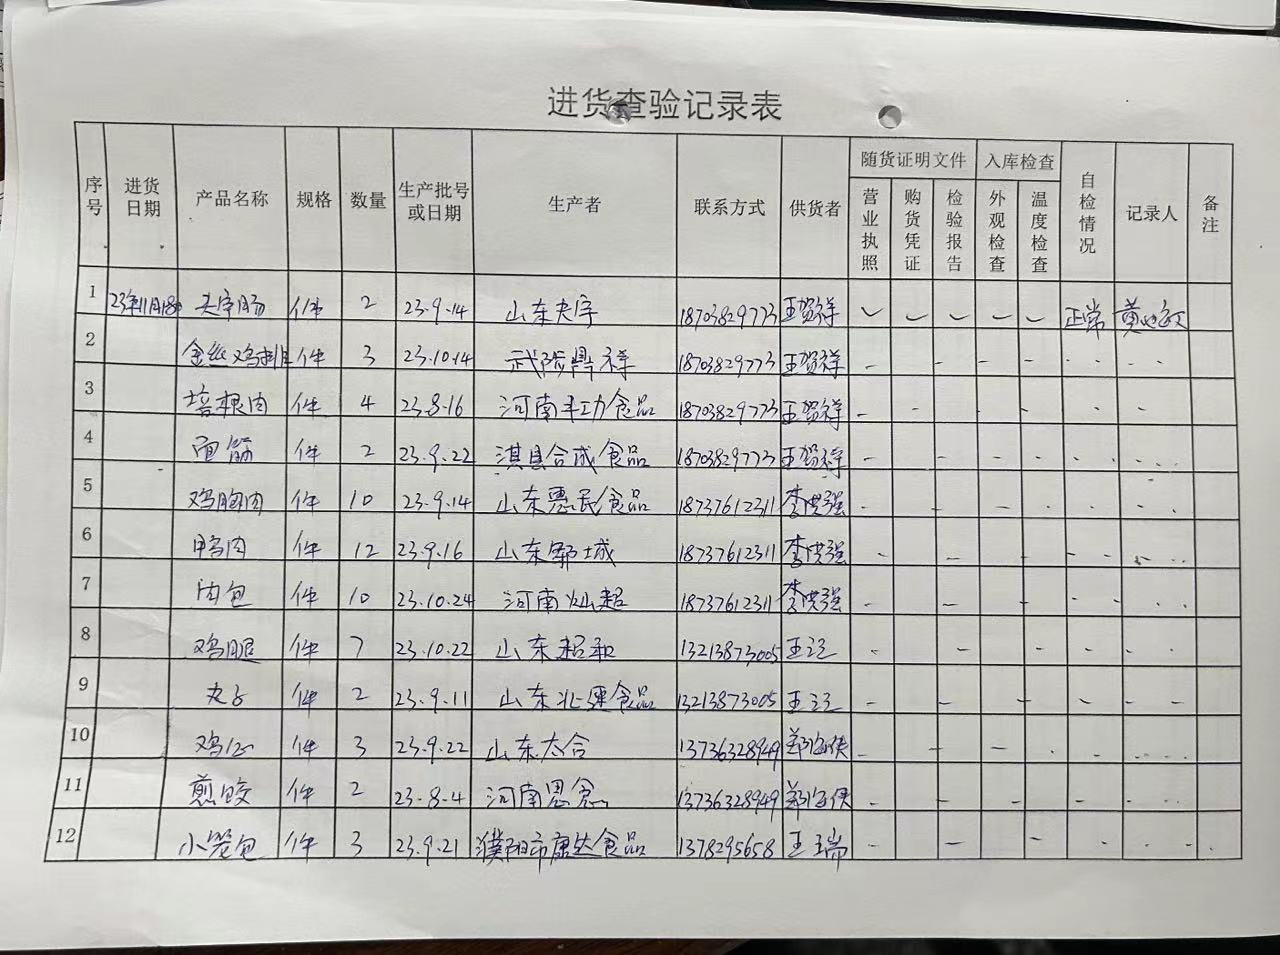 进货查验记录表
序号 进货日期 产品名称 规格 数量 生产批号或日期 生产者 联系方式 供货者 随货证明文件 入库检查 自检情况 记录人 备注
营业执照 购货凭证 检验报告 外观检查 温度检查
1 23年11月18日 件 2 23.9.14 山东 18703829773 王贺祥 ✓ ✓ ✓ ✓ ✓ 正常 黄
2 金丝鸡排 件 3 23.10.14 武陟鼎祥 18703829773 王贺祥
3 培根肉 件 4 23.8.16 河南丰功食品 18703829773 王贺祥
4 面筋 件 2 23.9.22 淇县合成食品 18703829773 王贺祥
5 鸡胸肉 件 10 23.9.14 山东惠民食品 18737612311 李洪强
6 鸭肉 件 12 23.9.16 山东鄄城 18737612311 李洪强
7 肉包 件 10 23.10.24 河南灿超 18737612311 李洪强
8 鸡腿 件 7 23.10.22 山东超和 13213873005 王
9 丸子 件 2 23.9.11 山东北疆食品 13213873005 王
10 件 3 23.9.22 山东太合 13736328949 郑
11 煎饺 件 2 23.8.4 河南思念 13736328949 郑
12 小笼包 件 3 23.9.21 濮阳市康达食品 1378295658 王瑞